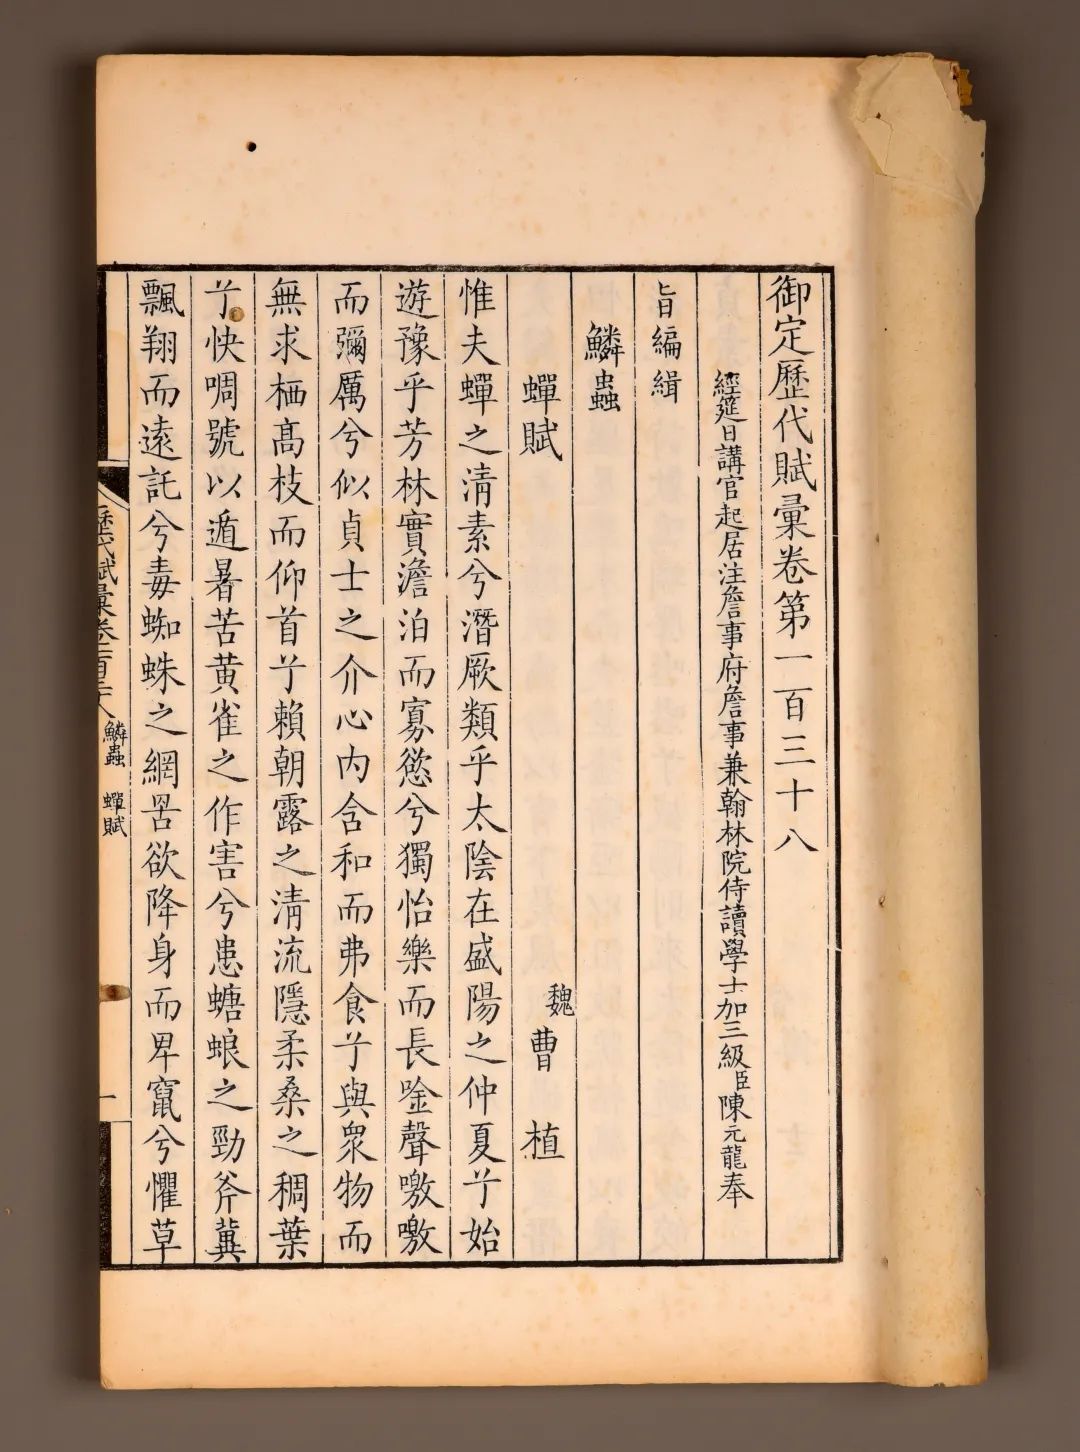 御定歷代賦彙卷第一百三十八
經筵日講官起居注詹事府詹事兼翰林院侍讀學士加三級臣陳元龍奉
旨編緝
鱗蟲
蟬賦
魏 曹 植
惟夫蟬之清素兮潛厥類乎太陰在盛陽之仲夏兮始
遊豫乎芳林實澹泊而寡慾兮獨怡樂而長唫聲噭噭
而彌厲兮似貞士之介心內含和而弗食兮與眾物而
無求栖高枝而仰首兮賴朝露之清流隱柔桑之稠葉
兮快啁號以遁暑苦黃雀之作害兮患螗蜋之勁斧冀
飄翔而遠託兮毒蜘蛛之網罟欲降身而卑竄兮懼草
歷代賦彙卷一百三十八 鱗蟲 蟬賦 一